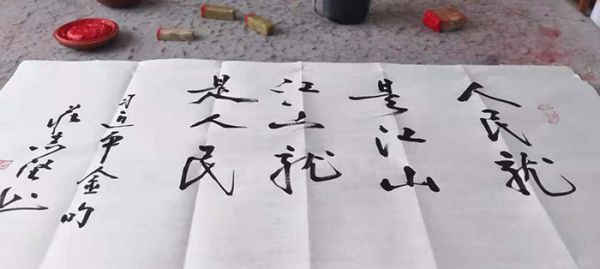 人民就
是江山
江山就
是人民
习近平金句
书